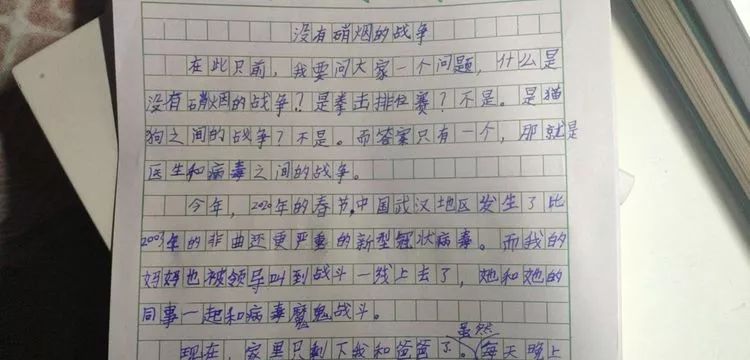 没有硝烟的战争
在此只前，我要问大家一个问题，什么是
没有硝烟的战争？是拳击排位赛？不是。是猫
狗之间的战争？不是。而答案只有一个，那就是
医生和病毒之间的战争。
今年，2020年的春节，中国武汉地区发生了比
2003年的非曲还更严重的新型冠状病毒。而我的
妈妈也被领导叫到战斗一线上去了，她和她的
同事一起和病毒魔鬼战斗。
虽然
现在，家里只剩下我和爸爸了。每天晚上